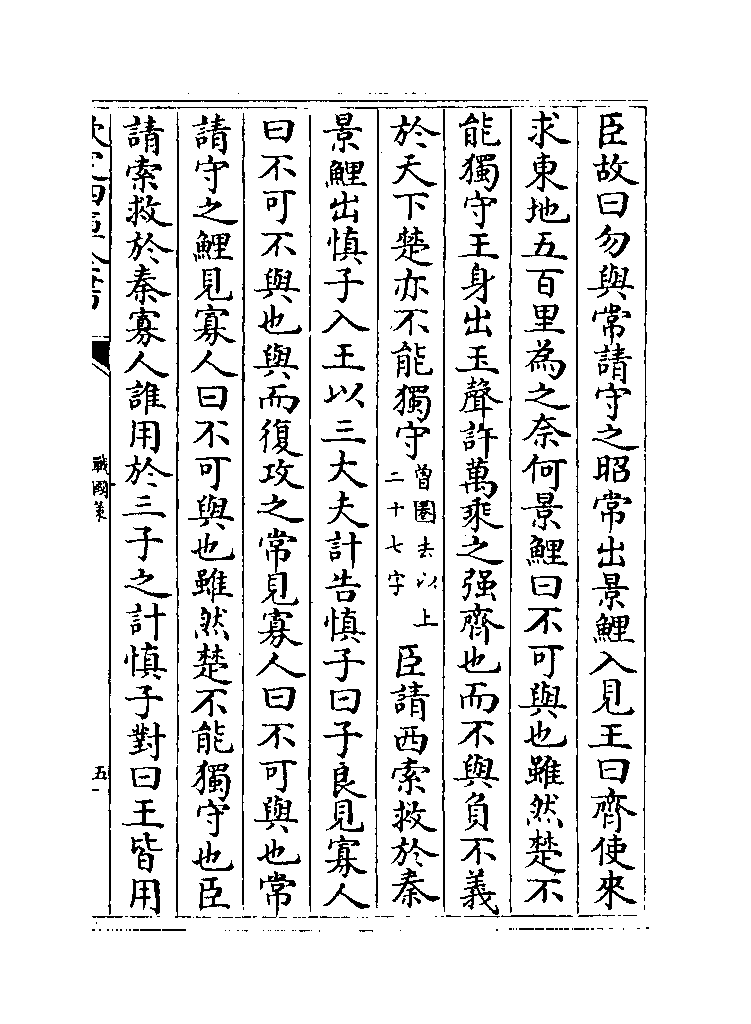 臣故曰勿與常請守之昭常出景鯉入見王曰齊使來
求東地五百里為之奈何景鯉曰不可與也雖然楚不
能獨守王身出玉聲許萬乘之强齊也而不與負不義
於天下楚亦不能獨守曾圈去以上二十七字臣請西索救於秦
景鯉出慎子入王以三大夫計告慎子曰子良見寡人
曰不可不與也與而復攻之常見寡人曰不可與也常
請守之鯉見寡人曰不可與也雖然楚不能獨守也臣
請索救於秦寡人誰用於三子之計慎子對曰王皆用
戰國策
五